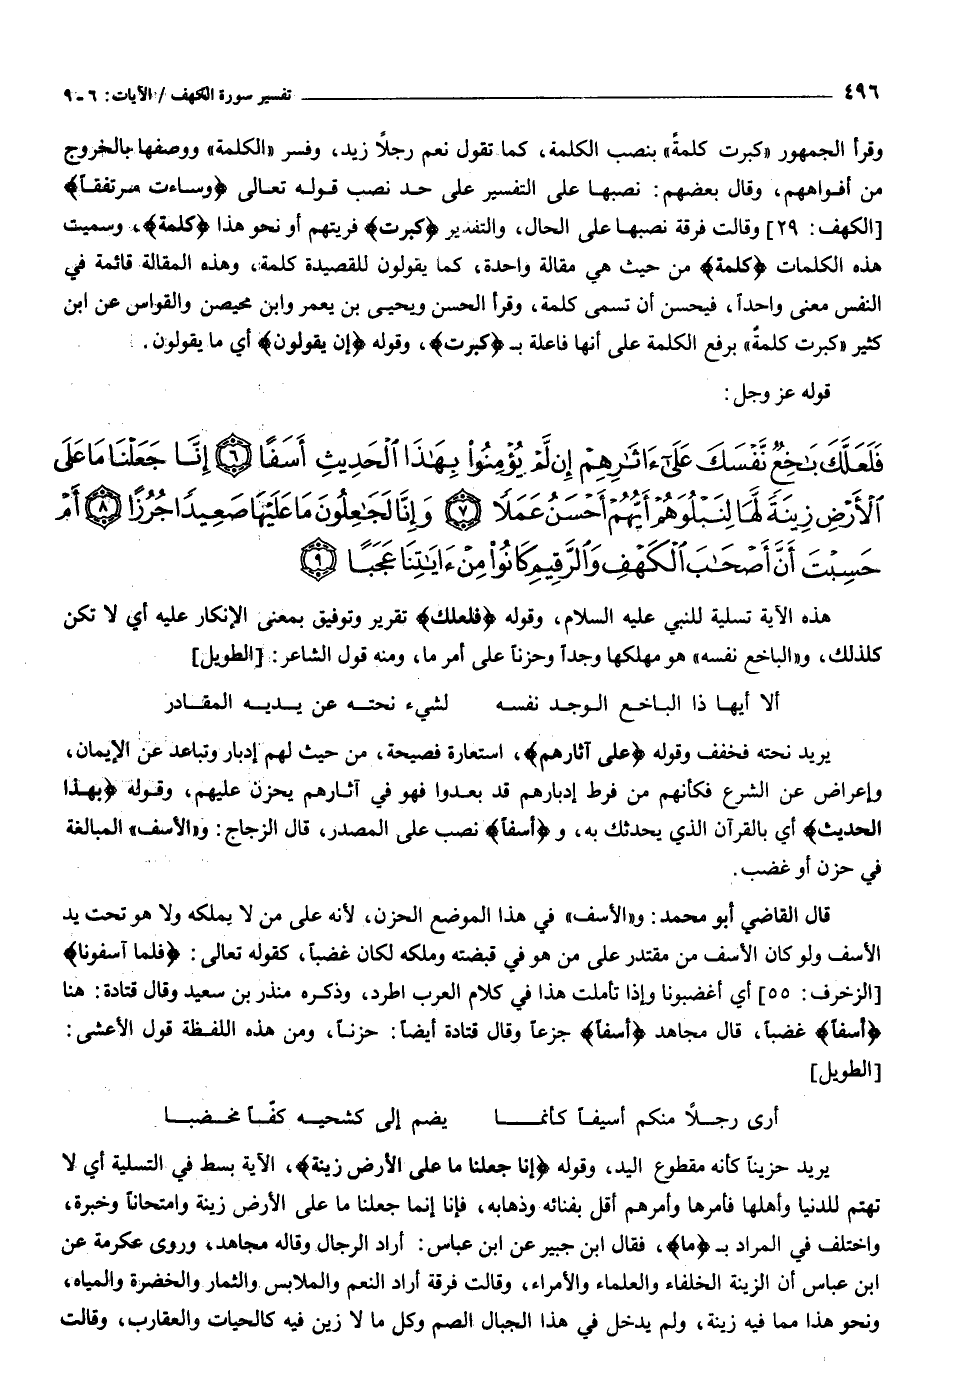 ٤٩٦ ـــــــ تفسير سورة الكهف / الآيات: ٦ ـ ٩
وقرأ الجمهور «كبرت كلمةً» بنصب الكلمة، كما تقول نعم رجلاً زيد، وفسر «الكلمة» ووصفها بالخروج
من أفواههم، وقال بعضهم: نصبها على التفسير على حد نصب قوله تعالى ﴿وساءت مرتفقاً﴾
[الكهف: ٢٩] وقالت فرقة نصبها على الحال، والتقدير ﴿كبرت﴾ فريتهم أو نحو هذا ﴿كلمة﴾، وسميت
هذه الكلمات ﴿كلمة﴾ من حيث هي مقالة واحدة، كما يقولون للقصيدة كلمة، وهذه المقالة قائمة في
النفس معنى واحداً، فيحسن أن تسمى كلمة، وقرأ الحسن ويحيى بن يعمر وابن محيصن والقواس عن ابن
كثير «كبرت كلمةٌ» برفع الكلمة على أنها فاعلة بـ ﴿كبرت﴾، وقوله ﴿إن يقولون﴾ أي ما يقولون.
قوله عز وجل:
فَلَعَلَّكَ بَـٰخِعٌ نَّفْسَكَ عَلَىٰٓ ءَاثَـٰرِهِمْ إِن لَّمْ يُؤْمِنُوا۟ بِهَـٰذَا ٱلْحَدِيثِ أَسَفًا ٦ إِنَّا جَعَلْنَا مَا عَلَى
ٱلْأَرْضِ زِينَةً لَّهَا لِنَبْلُوَهُمْ أَيُّهُمْ أَحْسَنُ عَمَلًا ٧ وَإِنَّا لَجَـٰعِلُونَ مَا عَلَيْهَا صَعِيدًا جُرُزًا ٨ أَمْ
حَسِبْتَ أَنَّ أَصْحَـٰبَ ٱلْكَهْفِ وَٱلرَّقِيمِ كَانُوا۟ مِنْ ءَايَـٰتِنَا عَجَبًا ٩
هذه الآية تسلية للنبي عليه السلام، وقوله ﴿فلعلك﴾ تقرير وتوفيق بمعنى الإنكار عليه أي لا تكن
كلذلك، و«الباخع نفسه» هو مهلكها وجداً وحزناً على أمر ما، ومنه قول الشاعر: [الطويل]
ألا أيها ذا الباخع الوجد نفسه لشيء نحته عن يديه المقادر
يريد نحته فخفف وقوله ﴿على آثارهم﴾، استعارة فصيحة، من حيث لهم إدبار وتباعد عن الإيمان،
وإعراض عن الشرع فكأنهم من فرط إدبارهم قد بعدوا فهو في آثارهم يحزن عليهم، وقوله ﴿بهذا
الحديث﴾ أي بالقرآن الذي يحدثك به، و ﴿أسفاً﴾ نصب على المصدر، قال الزجاج: و«الأسف» المبالغة
في حزن أو غضب.
قال القاضي أبو محمد: و«الأسف» في هذا الموضع الحزن، لأنه على من لا يملكه ولا هو تحت يد
الأسف ولو كان الأسف من مقتدر على من هو في قبضته وملكه لكان غضباً، كقوله تعالى: ﴿فلما آسفونا﴾
[الزخرف: ٥٥] أي أغضبونا وإذا تأملت هذا في كلام العرب اطرد، وذكره منذر بن سعيد وقال قتادة: هنا
﴿أسفاً﴾ غضباً، قال مجاهد ﴿أسفاً﴾ جزعاً وقال قتادة أيضاً: حزناً، ومن هذه اللفظة قول الأعشى:
[الطويل]
أرى رجلاً منكم أسيفاً كأنما يضم إلى كشحيه كفّاً مخضبا
يريد حزيناً كأنه مقطوع اليد، وقوله ﴿إنا جعلنا ما على الأرض زينة﴾، الآية بسط في التسلية أي لا
تهتم للدنيا وأهلها فأمرها وأمرهم أقل بفنائه وذهابه، فإنا إنما جعلنا ما على الأرض زينة وامتحاناً وخبرة،
واختلف في المراد بـ ﴿ما﴾، فقال ابن جبير عن ابن عباس: أراد الرجال وقاله مجاهد، وروى عكرمة عن
ابن عباس أن الزينة الخلفاء والعلماء والأمراء، وقالت فرقة أراد النعم والملابس والثمار والخضرة والمياه،
ونحو هذا مما فيه زينة، ولم يدخل في هذا الجبال الصم وكل ما لا زين فيه كالحيات والعقارب، وقالت